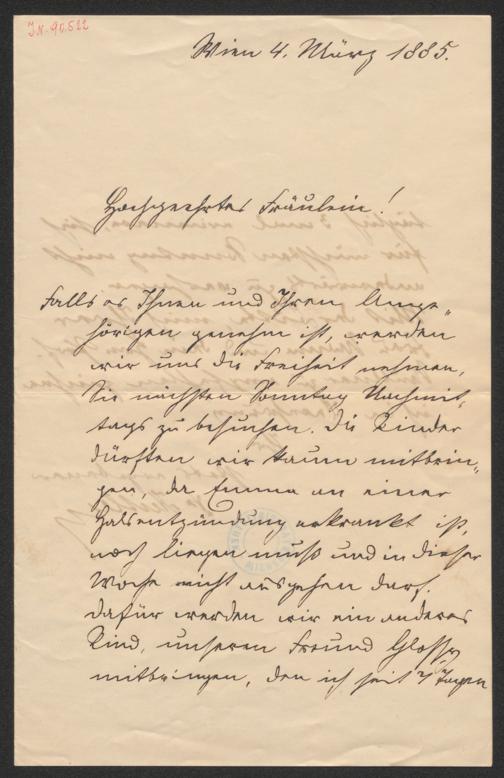 J.N. 90.522
Wien 4. März 1885.
Hochgeehrtes Fräulein!
Falls es Ihnen und Ihren Ange-
hörigen genehm ist, werden
wir uns die Freiheit nehmen,
Sie nächsten Sonntag Nachmit-
tags zu besuchen. Die Kinder
dürften wir kaum mitbrin-
gen, da Emma an einer
Halsentzündung erkrankt ist,
noch liegen muß und in dieser
Woche nicht ausgehen darf.
Dafür werden wir ein anderes
Kind, unseren Freund Glossy
mitbringen, den ich seit 4 Tagen